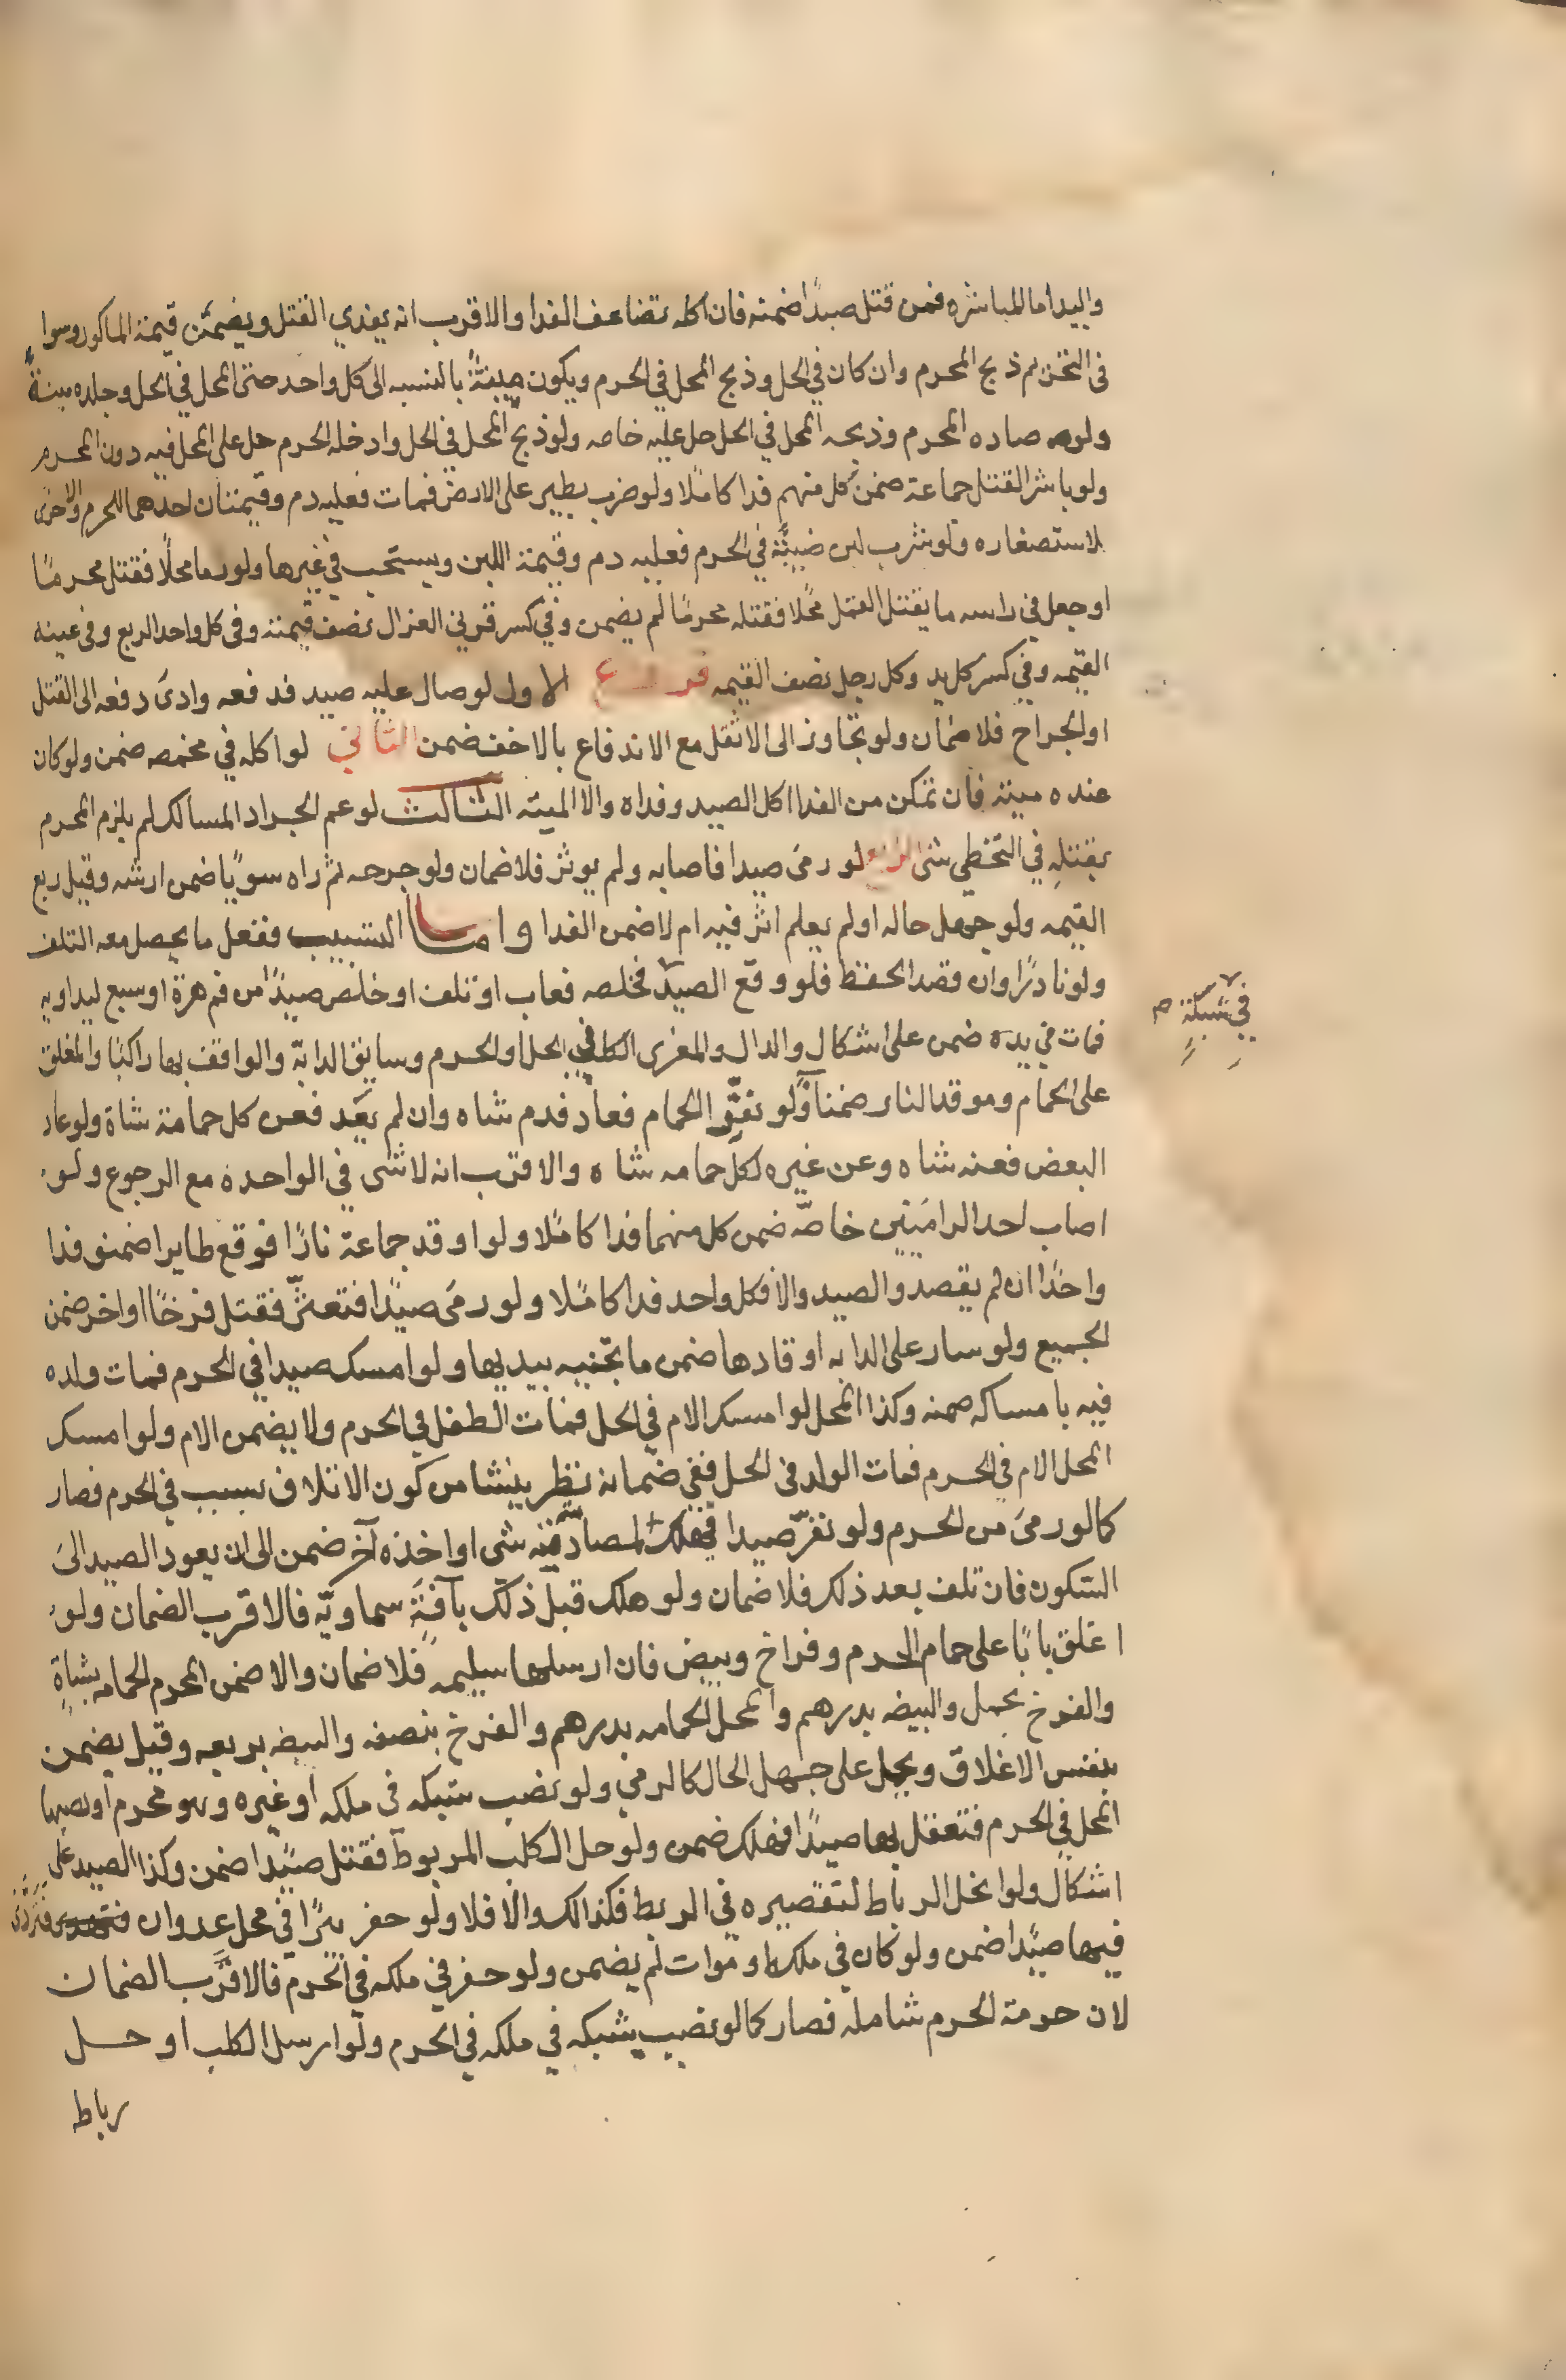 واليد اما المباشره فمن قتل صيدًا ضمنه فان اكله تضاعف الفدا والاقرب انه يفدي القتل ويضمن قيمة الماكول وسوا
فى التحريم ذبح المحرم وان كان في الحل وذبح المحل في الحرم ويكون ميتةً بالنسبه الى كل واحد حتى المحل في الحل وجلده ميتةً
ولو صاده المحرم وذبحه المحل في الحل حل عليه خاصه ولو ذبح المحل في الحل وادخله الحرم حل على المحل فيه دون المحرم
ولو باشر القتل جماعة ضمن كل منهم فدا كاملا ولو ضرب بطير على الارض فمات فعليه دم وقيمتان احدهما للحرم والاخرى
لاستصغاره ولو شرب لبن ضبيةٍ في الحرم فعليه دم وقيمة اللبن ويستحب في غيرها ولو رما محلًا فقتل محرمًا
او جعل في راسه ما يقتل القمل محلا فقتله محرمًا لم يضمن وفي كسر قرني الغزال نصف قيمته وفى كل واحد الربع وفى عينيه
القيمه وفي كسر كل يد وكل رجل نصف القيمه فروع الاول لو صال عليه صيد فدفعه وادى دفعه الى القتل
او الجراح فلا ضمان ولو تجاوز الى الاثقل مع الاندفاع بالاخف ضمن الثاني لو اكله في مخمصه ضمن ولو كان
عنده ميتة فان تمكن من الفدا اكل الصيد وفداه والا الميته الثالث لو عم الجراد المسالك لم يلزم المحرم
بقتلهِ في التخطي شئ الرابع لو رمى صيدا فاصابه ولم يوثر فلا ضمان ولو جرحه ثم راه سويًا ضمن ارشه وقيل ربع
القيمه ولو جهل حاله او لم يعلم اثر فيه ام لا ضمن الفدا واما التسبيب ففعل ما يحصل معه التلف
ولو نادرًا وان قصد الحفظ فلو وقع الصيد فخلصه فعاب او تلف او خلص صيدًا من فم هرة او سبع ليداويه
في شبكةٍ
فمات في يده ضمن على اشكال والدال والمغرى الكلب في الحل او الحرم وسايق الدابة والواقف بها راكبًا والمغلق
على الحمام وموقد النار ضمنا ولو نفّر الحمام فعاد فدم شاه وان لم يعد فعن كل حمامة شاة ولو عاد
البعض فعنه شاه وعن غيره لكل حمامه شاه والاقرب انه لا شى في الواحده مع الرجوع ولو
اصاب احد الراميين خاصّه ضمن كل منهما فدا كاملا ولو اوقد جماعة نارًا فوقع طايرا ضمنو فدا
واحدًا ان لم يقصدو الصيد والا فكل واحد فدا كاملا ولو رمى صيدًا فتعثّر فقتل فرخًا او اخر ضمن
الجميع ولو سار على الدابه او قادها ضمن ما تجنيه بيديها ولو امسك صيدا في الحرم فمات ولده
فيه بامساكه ضمنه وكذا المحل لو امسك الام في الحل فمات الطفل في الحرم ولا يضمن الام ولو امسك
المحل الام في الحرم فمات الولد في الحل ففي ضمانه نظر ينشا من كون الاتلاف بسبب في الحرم فصار
كما لو رمى من الحرم ولو نفرّ صيدا فهلك لمصادفته شى او اخذه آخر ضمن الى ان يعود الصيد الى
السّكون فان تلف بعد ذلك فلا ضمان ولو هلك قبل ذلك بآفةٍ سماويّه فالاقرب الضمان ولو
اغلق بابًا على حمام الحرم وفراخ وبيض فان ارسلها سليمه فلا ضمان والا ضمن المحرم الحمامه بشاةٍ
والفرخ بحمل والبيضه بدرهم والمحل الحمامه بدرهم والفرخ بنصفه والبيضه بربعه وقيل يضمن
بنفس الاغلاق ويحمل على جهل الحال كالرمي ولو نصب شبكه في ملكه او غيره وهو محرم او نصبها
المحل في الحرم فتعقل بها صيدًا فهلك ضمن ولو حل الكلب المربوط فقتل صيدا ضمن وكذا الصيد على
اشكال ولو انحل الرباط لتقصيره في الربط فكذالك والا فلا ولو حفر بئرًا في محل عدوان فتردّى
فيها صيدا ضمن ولو كان في ملكه او موات لم يضمن ولو حفر في ملكه في الحرم فالاقرب الضمان
لان حرمة الحرم شامله فصار كما لو نصب شبكه في ملكه في الحرم ولو ارسل الكلب او حل
رباط